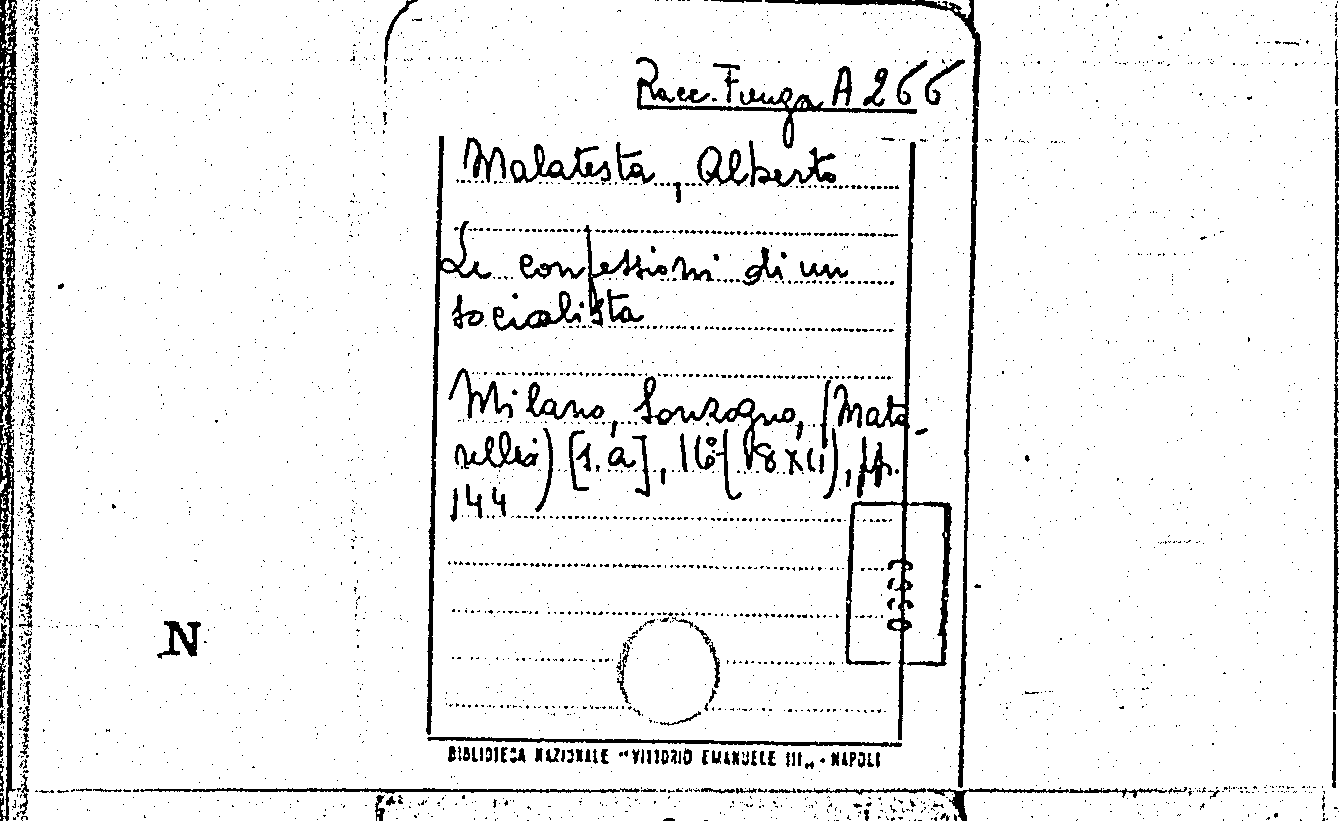 Racc. Fuuga A 266
Malatesta, Alberto
Le confessioni di un
socialista
Milano, Sonzogno, (Mata-
relli) [s.a], 16° (18x11), pp.
144
N
BIBLIOTECA NAZIONALE "VITTORIO EMANUELE III„ - NAPOLI